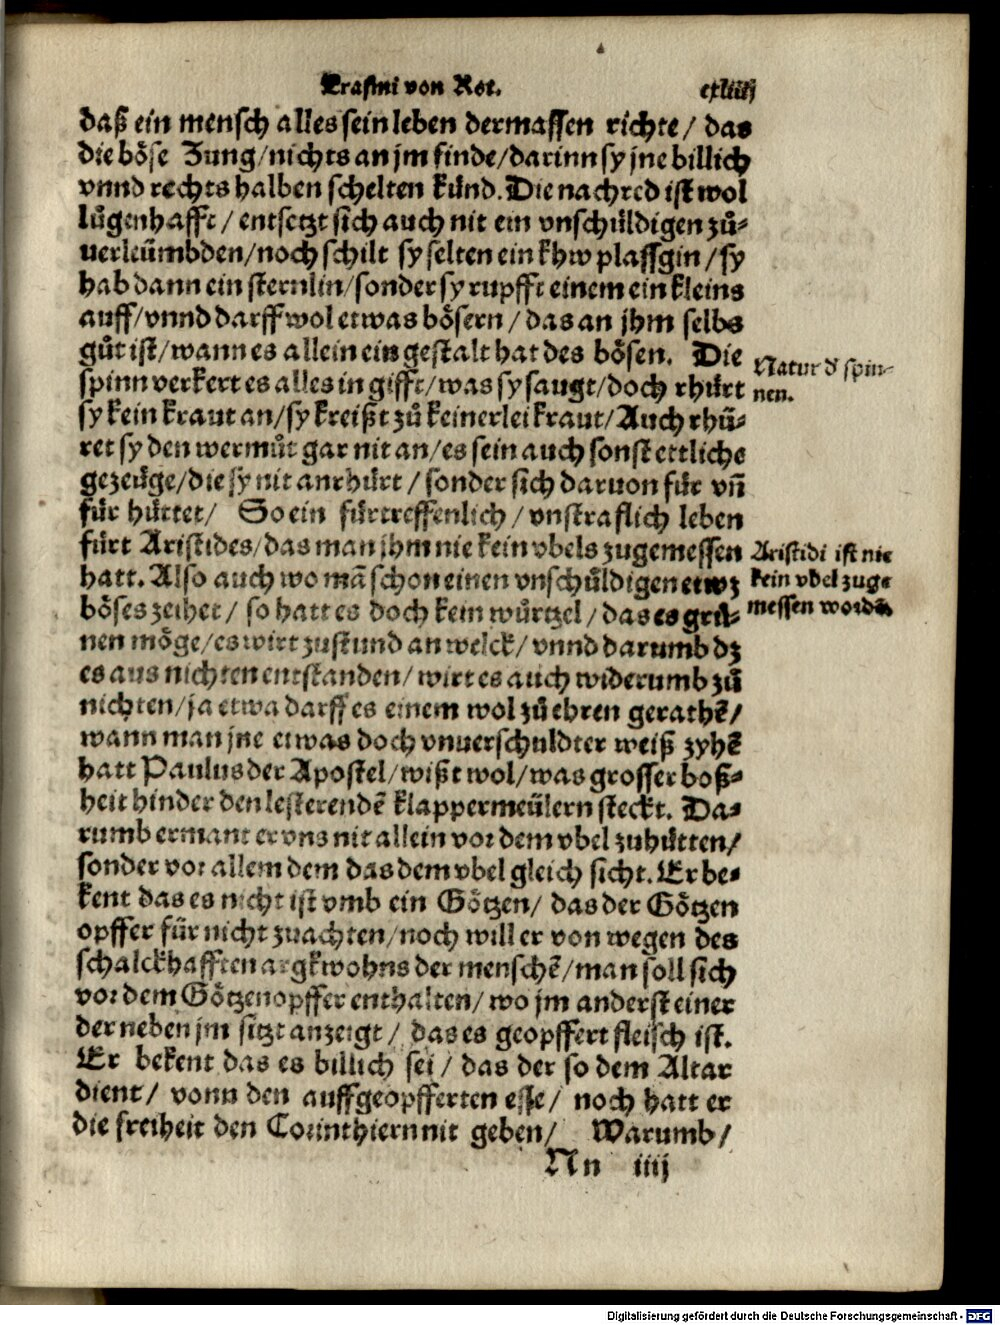 Erasmi von Rot. cxliiij
daß ein mensch alles sein leben dermassen richte / das
die böse Zung / nichts an jm finde / darinn sy jne billich
vnnd rechts halben schelten künd. Die nachred ist wol
lůgenhafft / entsetzt sich auch nit ein vnschůldigen zů⸗
uerleümbden / noch schilt sy selten ein khw plassgin / sy
hab dann ein sternlin / sonder sy rupfft einem ein kleins
auff / vnnd darff wol etwas bösern / das an jhm selbs
gůt ist / wann es allein ein gestalt hat des bösen. Die
spinn verkert es alles in gifft / was sy saugt / doch rhürt
Natur d' spin⸗
nen.
sy kein kraut an / sy kreißt zů keinerlei kraut / Auch rhü⸗
ret sy den wermůt gar nit an / es sein auch sonst ettliche
gezeüge / die sy nit anrhürt / sonder sich daruon für vñ
für hüttet / So ein fürtreffenlich / vnstraflich leben
fürt Aristides / das man jhm nie kein vbels zugemessen
hatt. Also auch wo mã schon einen vnschůldigen etwz
böses zeihet / so hatt es doch kein würtzel / das es grü⸗
Aristidi ist nie
kein vbel zuge
messen wordẽ.
nen möge / es wirt zustund an welck / vnnd darumb dz
es aus nichten entstanden / wirt es auch widerumb zů
nichten / ja etwa darff es einem wol zů ehren gerathẽ /
wann man jne etwas doch vnuerschuldter weiß zyhẽ
hatt Paulus der Apostel / wißt wol / was grosser boß⸗
heit hinder den lesterendẽ klappermeülern steckt. Da⸗
rumb ermant er vns nit allein vor dem vbel zuhütten /
sonder vor allem dem das dem vbel gleich sicht. Er be⸗
kent das es nicht ist vmb ein Götzen / das der Götzen
opffer für nicht zuachten / noch will er von wegen des
schalckhafften argkwohns der menschẽ / man soll sich
vor dem Götzenopffer enthalten / wo jm anderst einer
der neben jm sitzt anzeigt / das es geopffert fleisch ist.
Er bekent das es billich sei / das der so dem Altar
dient / vonn den auffgeopfferten esse / noch hatt er
die freiheit den Corinthiern nit geben / Warumb /
Nn iiij
Digitalisierung gefördert durch die Deutsche Forschungsgemeinschaft - DFG